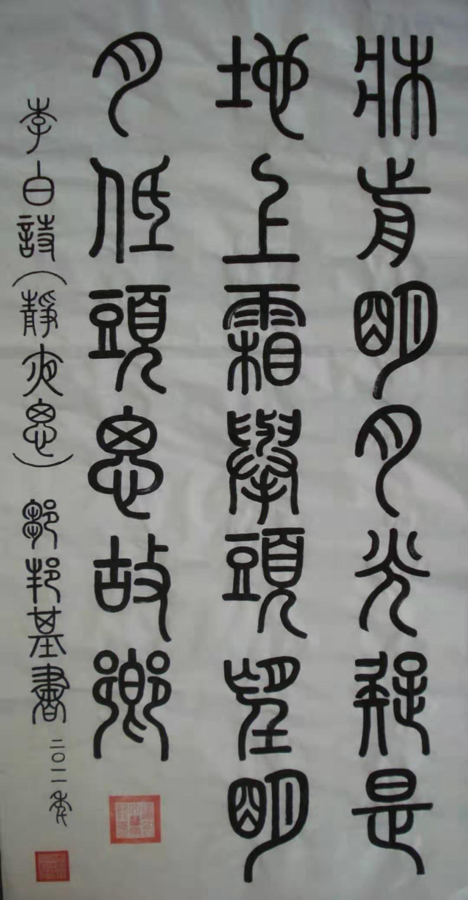 牀前明月光疑是
地上霜舉頭望明
月低頭思故鄉
李白詩(靜夜思) 鄒邦基書 二〇一一年